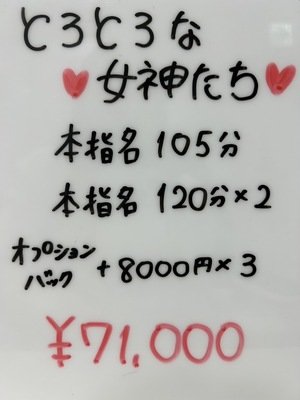 とろとろな
♥女神たち♥
本指名 105分
本指名 120分×2
オプション
バック +8000円×3
¥71,000